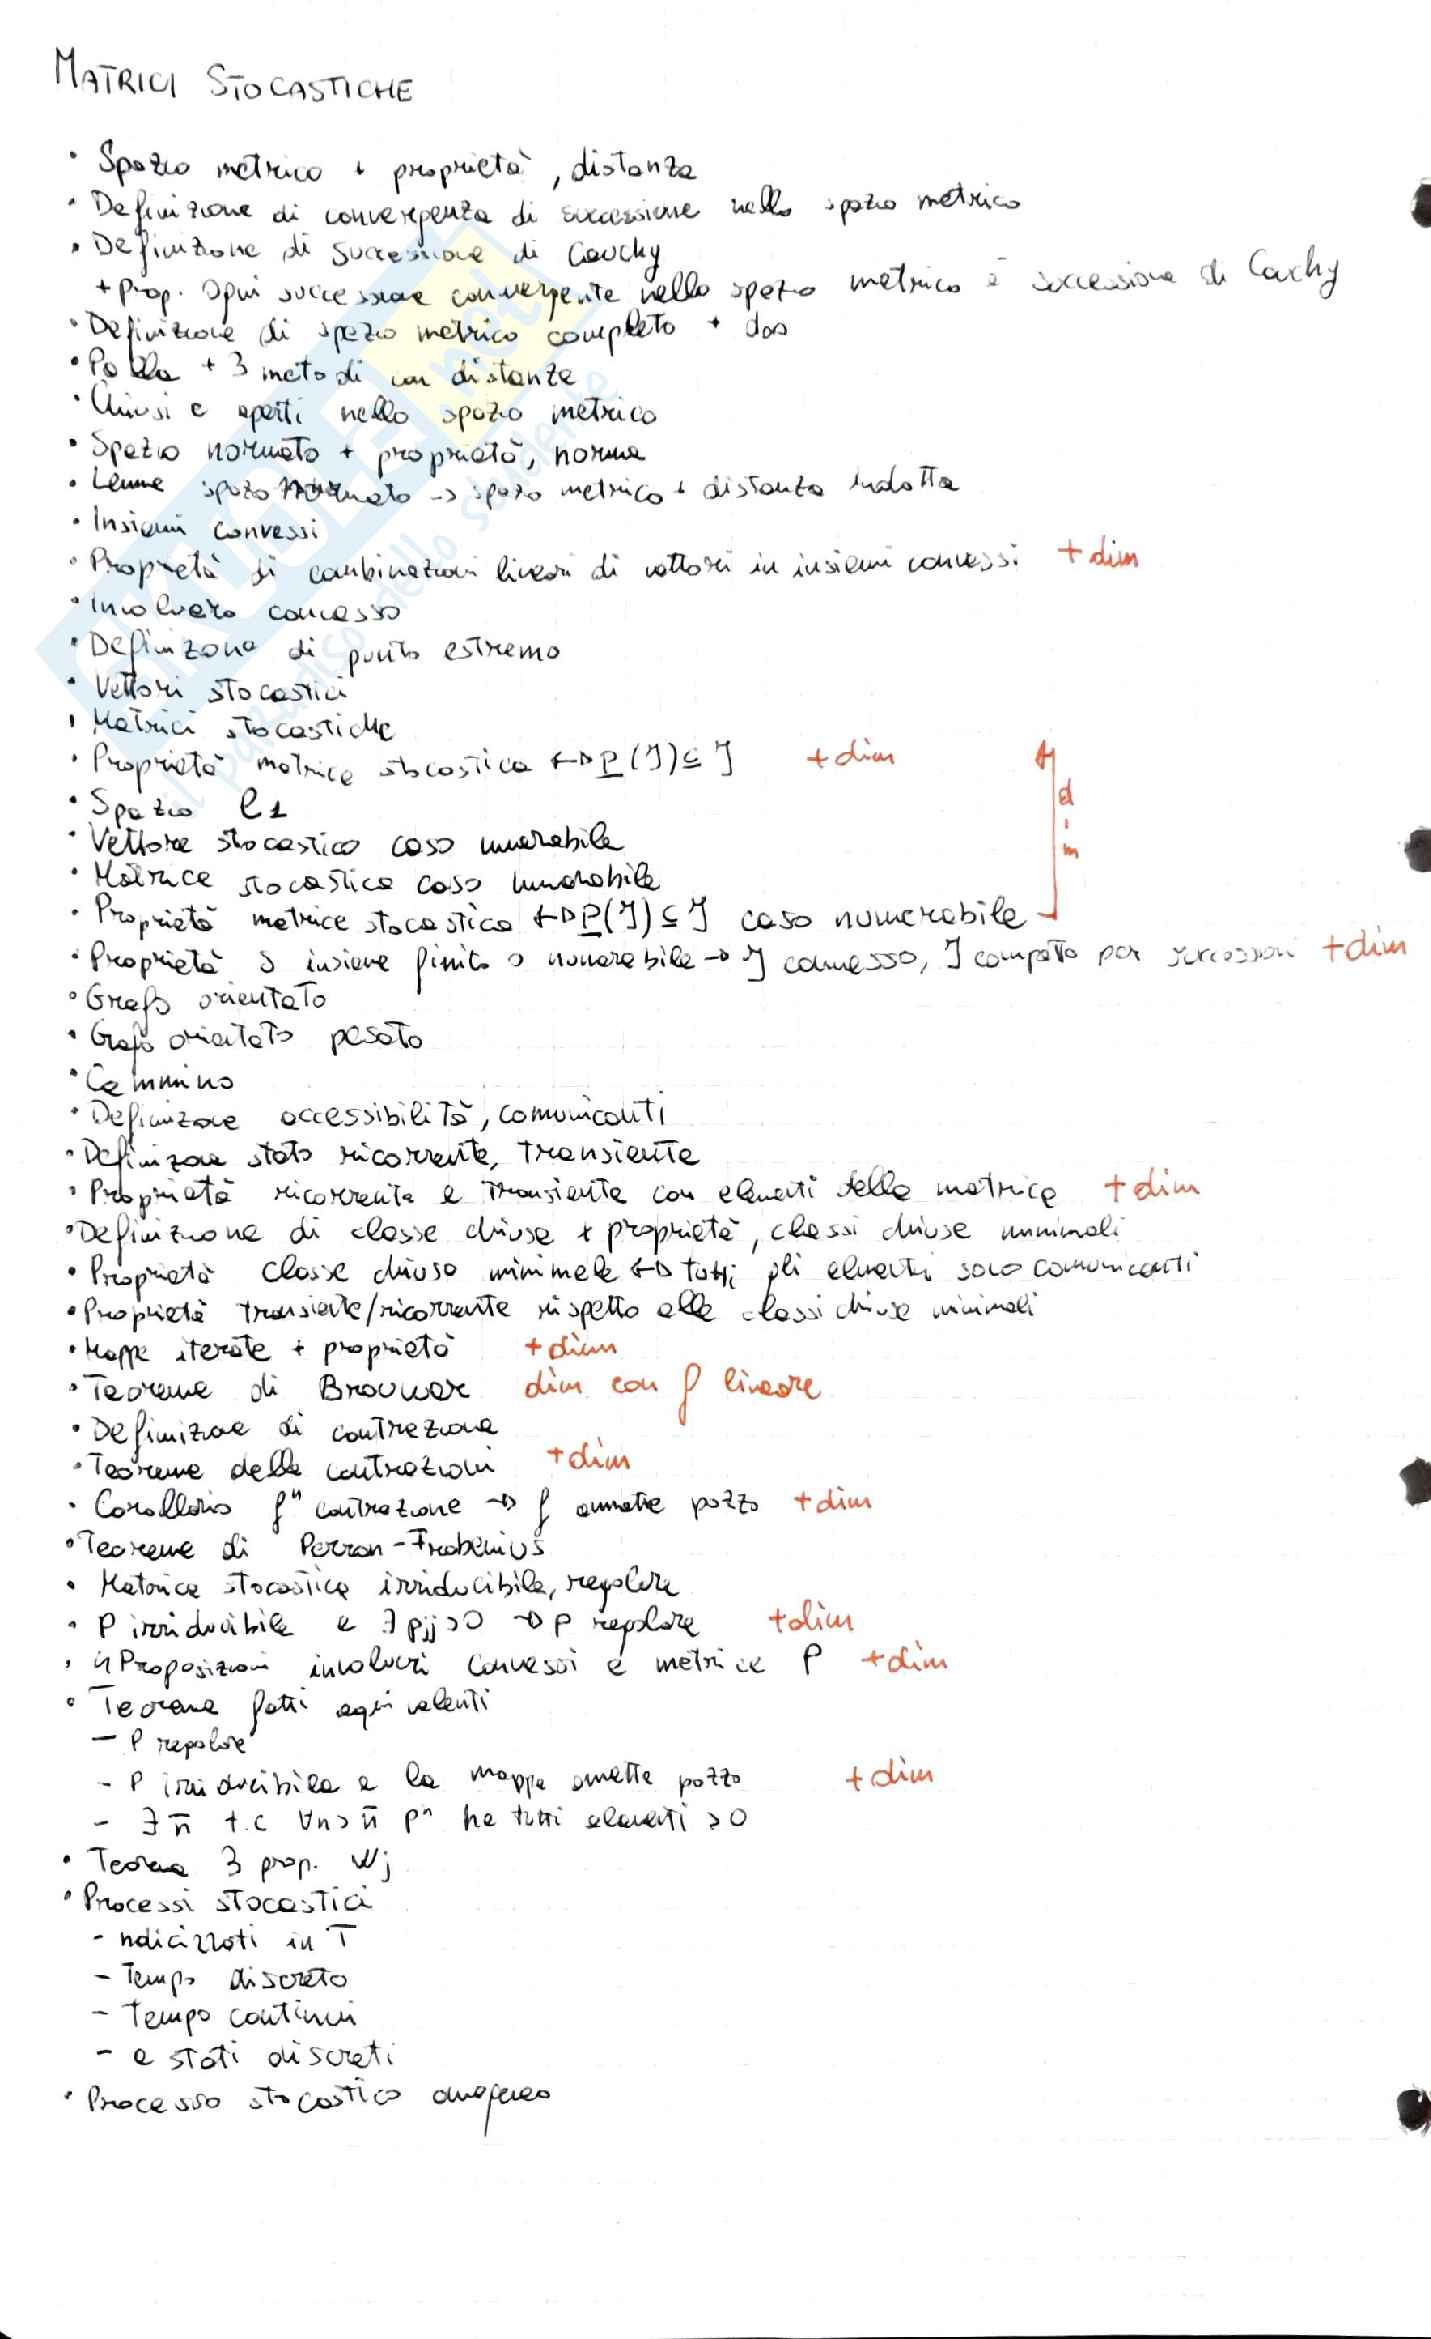 MATRICI STOCASTICHE
• Spazio metrico + proprietà, distanza
• Definizione di convergenza di successione nello spazio metrico
• Definizione di successione di Cauchy
+ prop. ogni successione convergente nello spazio metrico è successione di Cauchy
• Definizione di spazio metrico completo +
• Palla + 3 metodi con distanze
• Chiusi e aperti nello spazio metrico
• Spazio normato + proprietà, norma
• Lemma spazio normato -> spazio metrico + distanza indotta
• Insiemi convessi
• Proprietà di combinazioni lineari di vettori in insiemi convessi + dim
• Involucro convesso
• Definizione di punto estremo
• Vettori stocastici
• Matrici stocastiche
• Proprietà matrice stocastica <-> P(J) ⊆ J + dim
• Spazio l1
• Vettore stocastico caso numerabile
• Matrice stocastica caso numerabile
• Proprietà matrice stocastica <-> P(J) ⊆ J caso numerabile dim
• Proprietà S insieme finito o numerabile -> J convesso, J compatto per successioni + dim
• Grafo orientato
• Grafo orientato pesato
• Cammino
• Definizione accessibilità, comunicanti
• Definizione stato ricorrente, transiente
• Proprietà ricorrente e transiente con elementi della matrice + dim
• Definizione di classe chiusa + proprietà, classi chiuse minimali
• Proprietà classe chiusa minimale <-> tutti gli elementi sono comunicanti
• Proprietà transiente/ricorrente rispetto alle classi chiuse minimali
• Mappe iterate + proprietà + dim
• Teorema di Brouwer dim con f lineare
• Definizione di contrazione
• Teorema delle contrazioni + dim
• Corollario fⁿ contrazione -> f ammette pozzo + dim
• Teorema di Perron-Frobenius
• Matrice stocastica irriducibile, regolare
• P irriducibile e ∃ pjj>0 -> P regolare + dim
• 4 Proposizioni involucri convessi e matrice P + dim
• Teorema fatti equivalenti
- P regolare
- P irriducibile e la mappa ammette pozzo + dim
- ∃ n̄ t.c ∀n>n̄ Pⁿ ha tutti elementi >0
• Teorema 3 prop. wj
• Processi stocastici
- indicizzati in T
- Tempo discreto
- Tempo continui
- a stati discreti
• Processo stocastico omogeneo
SKUOLA.net
il paradiso dello studente